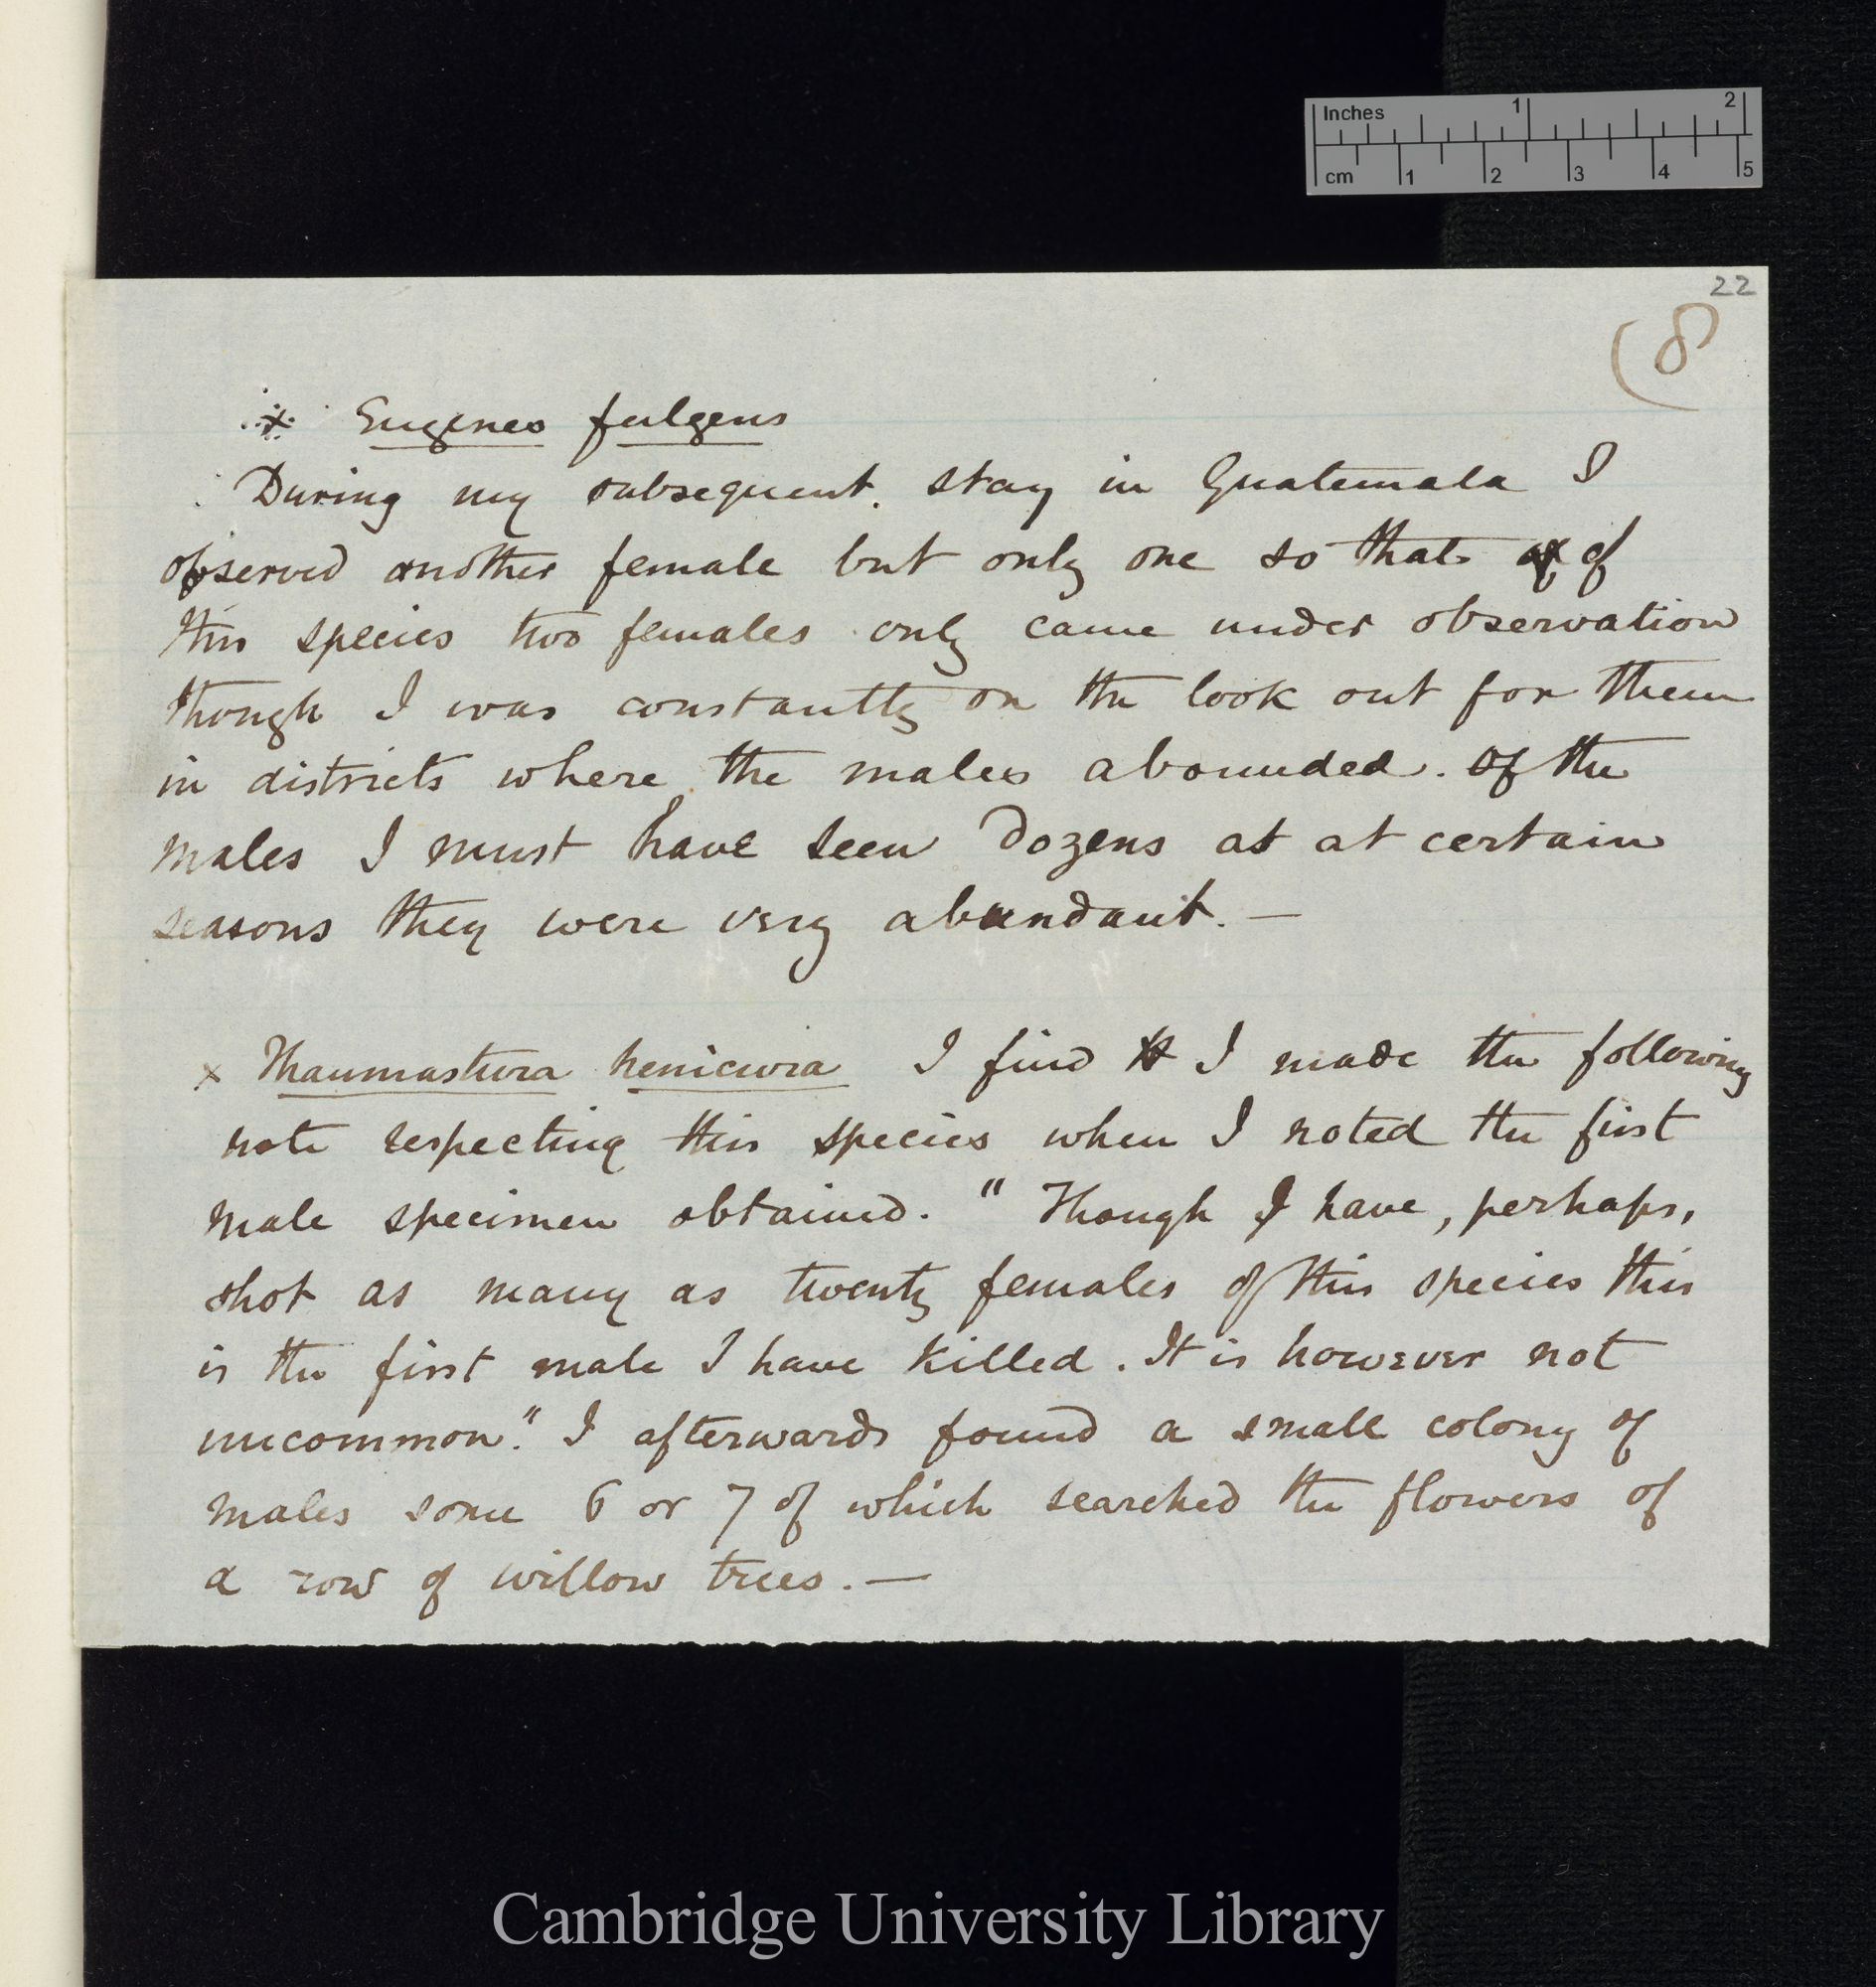 Inches 1 2
cm 1 2 3 4 5
22
(8
x Eugenes fulgens
During my subsequent stay in Guatemala I
observed another female but only one so that of
this species two females only came under observation
though I was constantly on the look out for them
in districts where the males abounded. Of the
males I must have seen dozens as at certain
seasons they were very abundant. —
x Thaumastura henicura I find I made the following
note respecting this species when I noted the first
male specimen obtained. "Though I have, perhaps,
shot as many as twenty females of this species this
is the first male I have killed. It is however not
uncommon." I afterwards found a small colony of
males some 6 or 7 of which searched the flowers of
a row of willow trees. —
Cambridge University Library